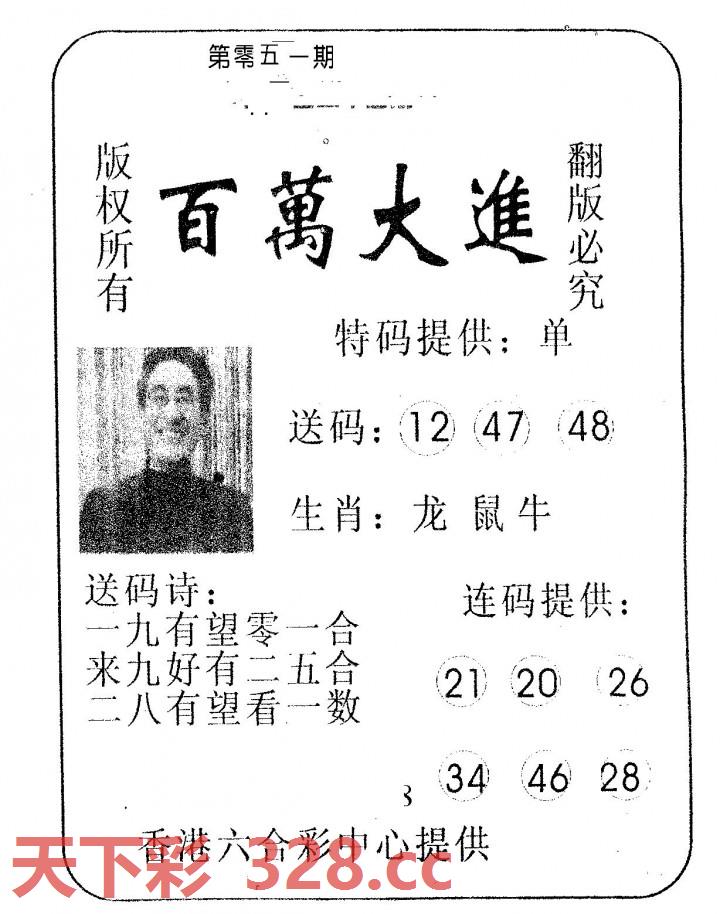 第零五一期
版权所有
百萬大進
翻版必究
特码提供：单
送码：12 47 48
生肖：龙 鼠 牛
送码诗：
一九有望零一合
来九好有二五合
二八有望看一数
连码提供：
21 20 26
34 46 28
香港六合彩中心提供
天下彩 328.cc